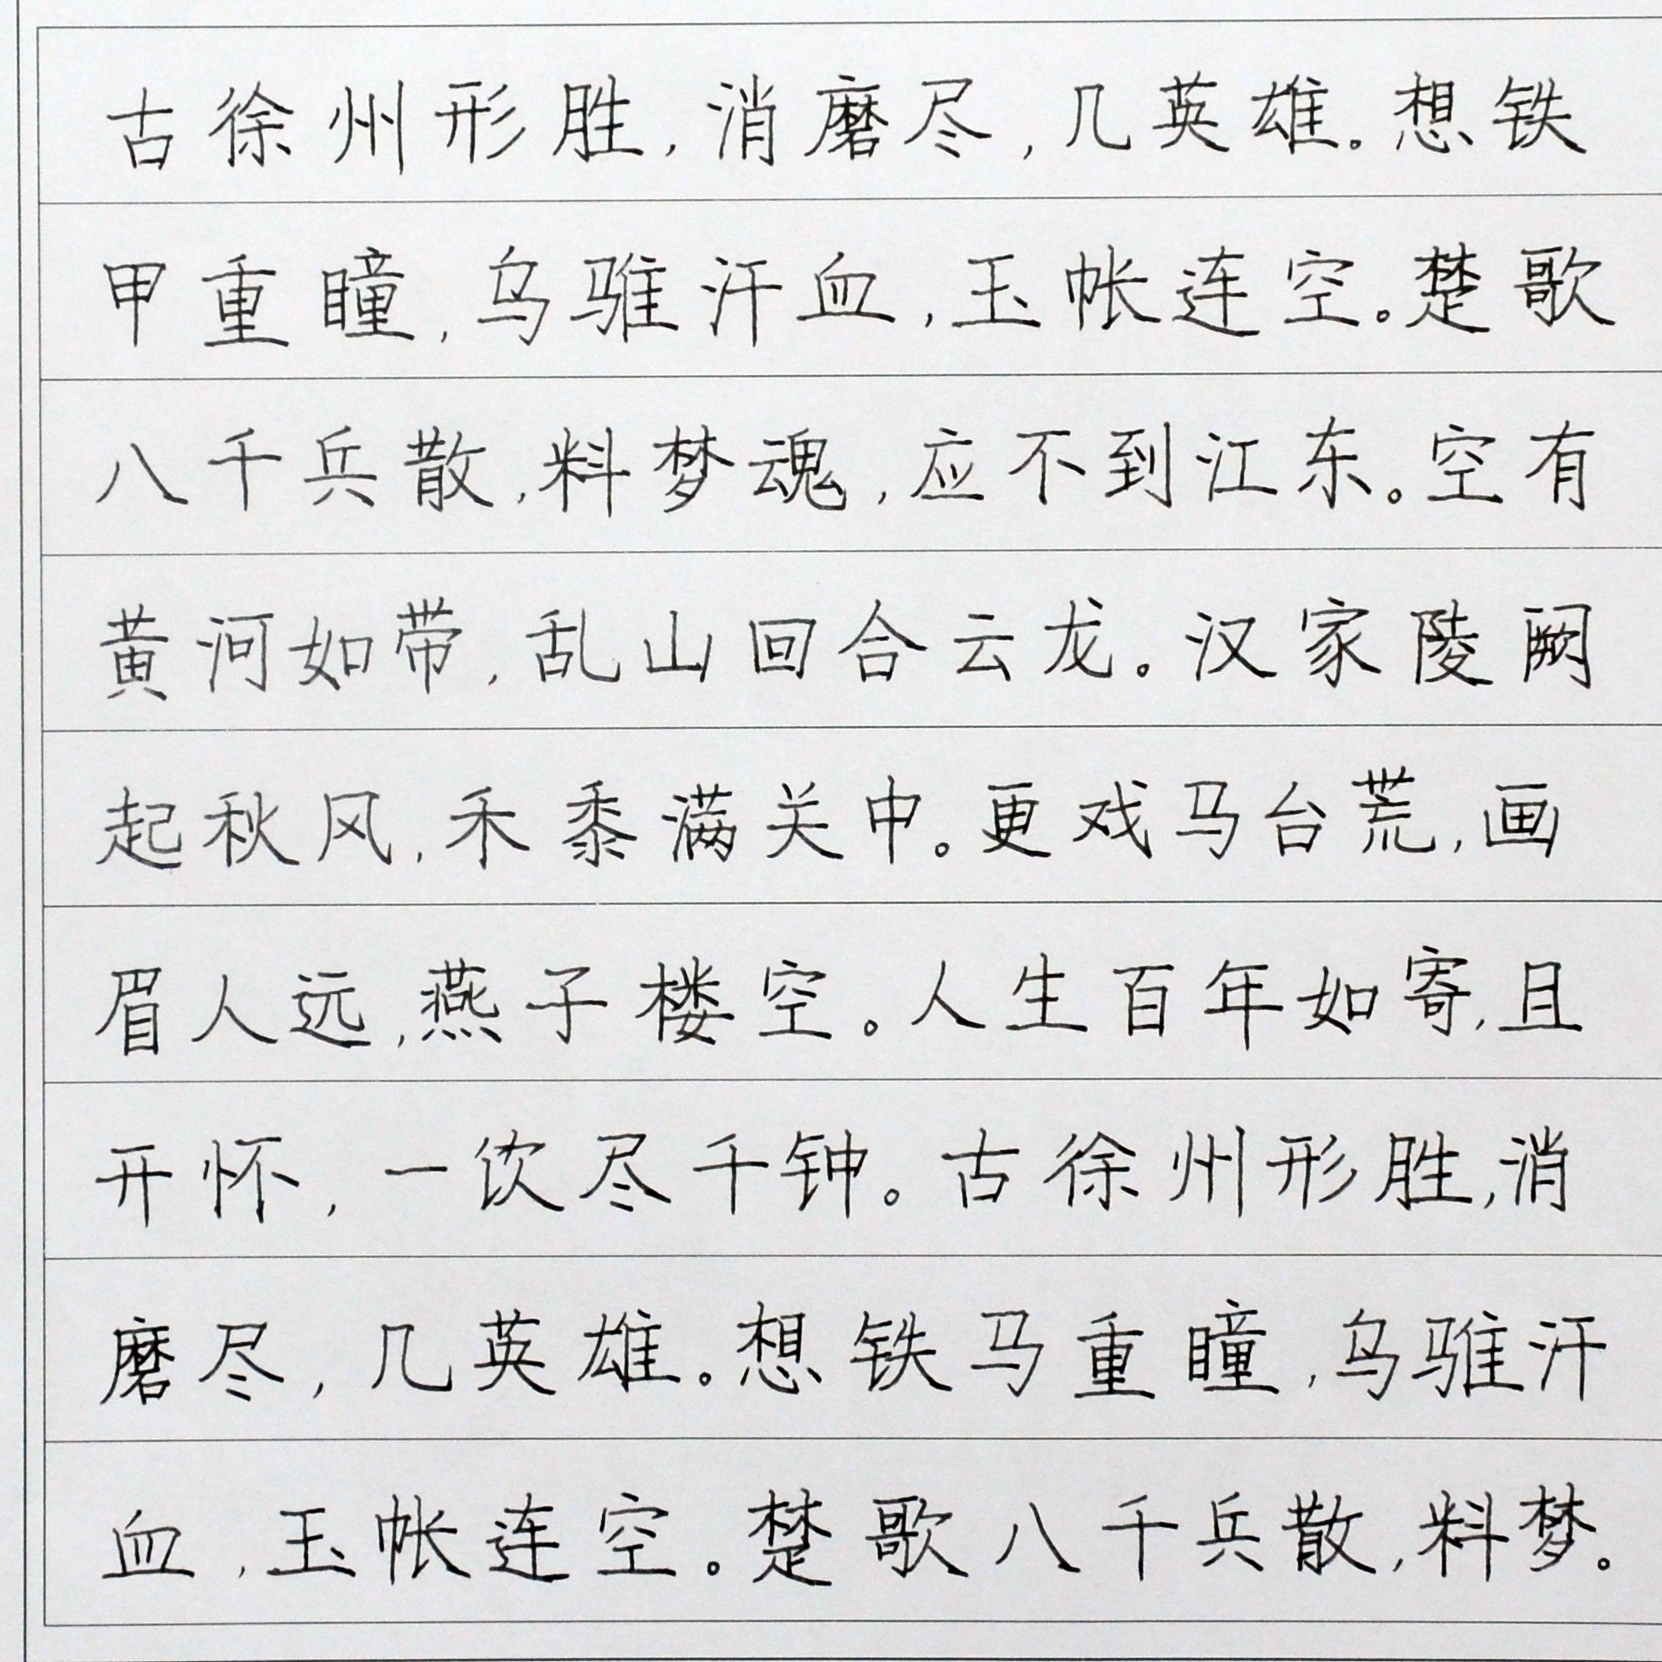 古徐州形胜,消磨尽,几英雄。想铁
甲重瞳,乌骓汗血,玉帐连空。楚歌
八千兵散,料梦魂,应不到江东。空有
黄河如带,乱山回合云龙。汉家陵阙
起秋风,禾黍满关中。更戏马台荒,画
眉人远,燕子楼空。人生百年如寄,且
开怀,一饮尽千钟。古徐州形胜,消
磨尽,几英雄。想铁马重瞳,乌骓汗
血,玉帐连空。楚歌八千兵散,料梦。